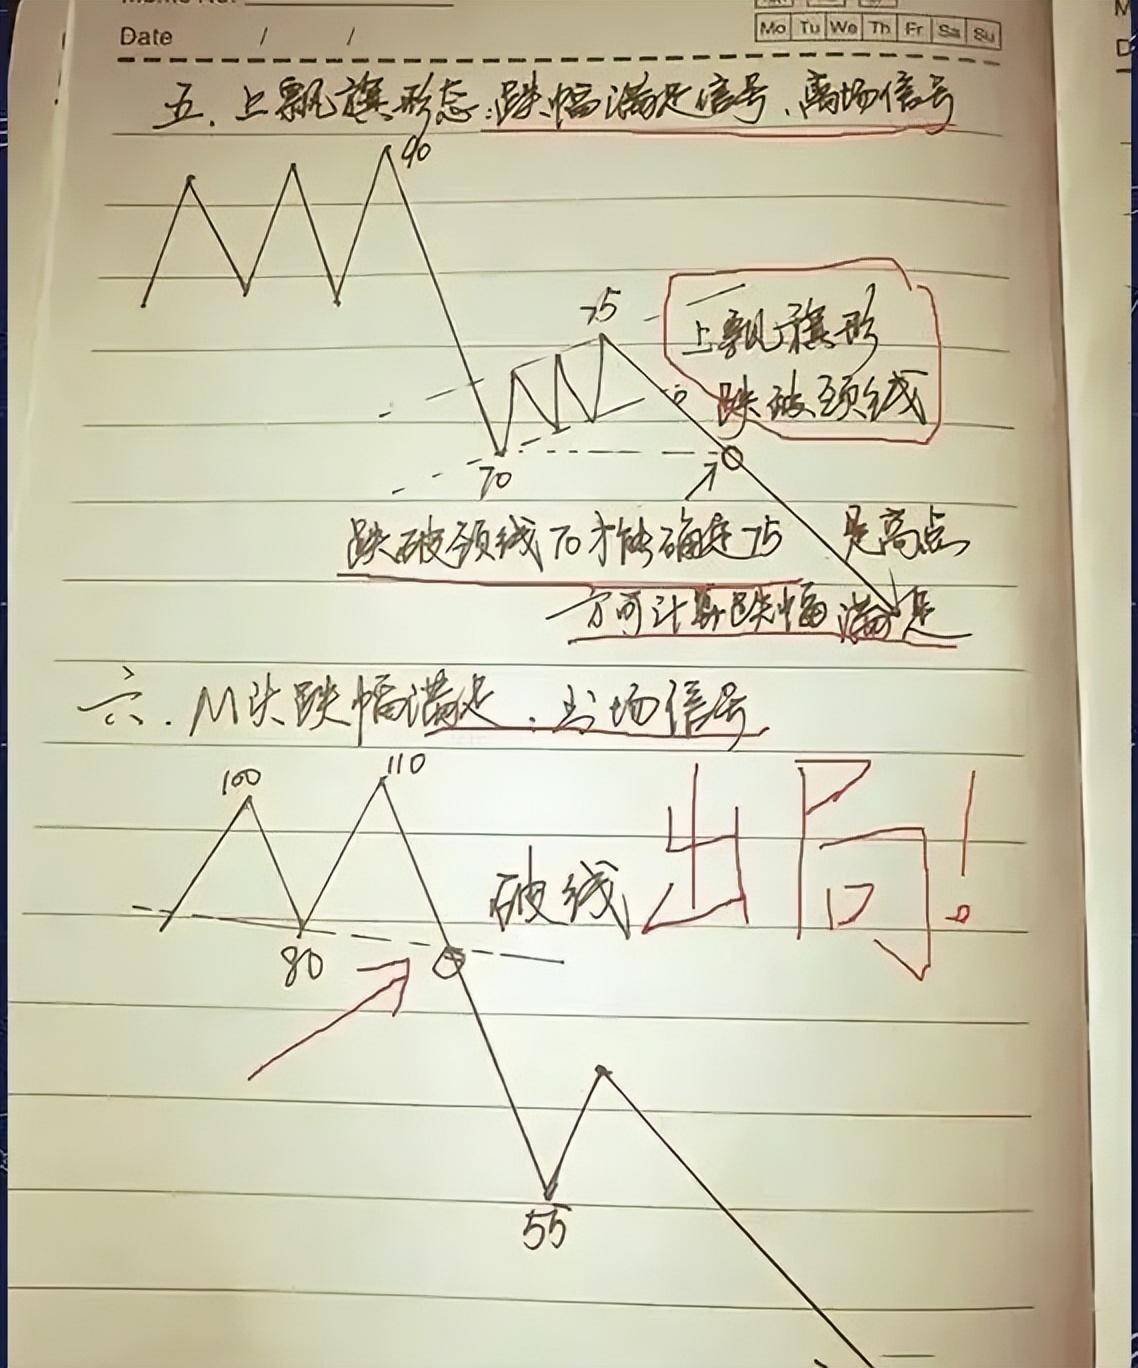 Date / /
Mo Tu We Th Fr Sa Su
五、上飘旗形态:跌幅满足信号、离场信号
90
75
上飘旗形
跌破颈线
70
跌破颈线70才能确定75是高点
方可计算跌幅满足
六、M头跌幅满足,出场信号
100
110
破线出局!
80
55